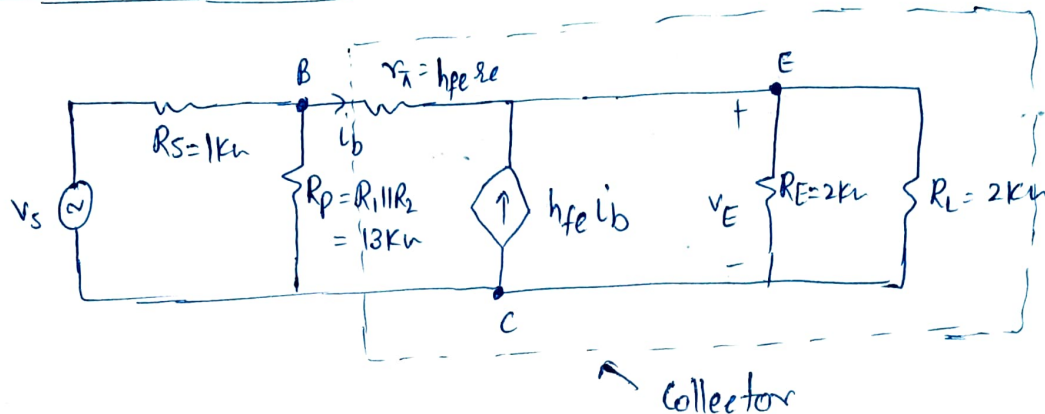 B
rπ = hfe re
E
RS=1KΩ
ib
+
Vs
~
Rp = R1||R2
= 13KΩ
hfe ib
VE
RE=2KΩ
RL = 2KΩ
-
C
Collector